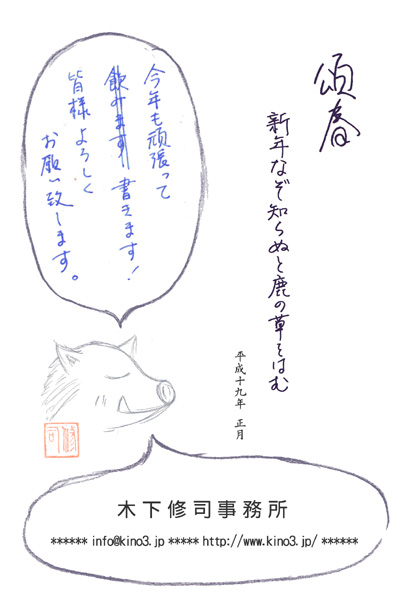 頌春
新年なぞ知らぬと鹿の草をはむ
平成十九年 正月
今年も頑張って
飲みます!書きます!
皆様よろしく
お願い致します。
修司
木下修司事務所
****** info@kino3.jp ***** http://www.kino3.jp/ ******